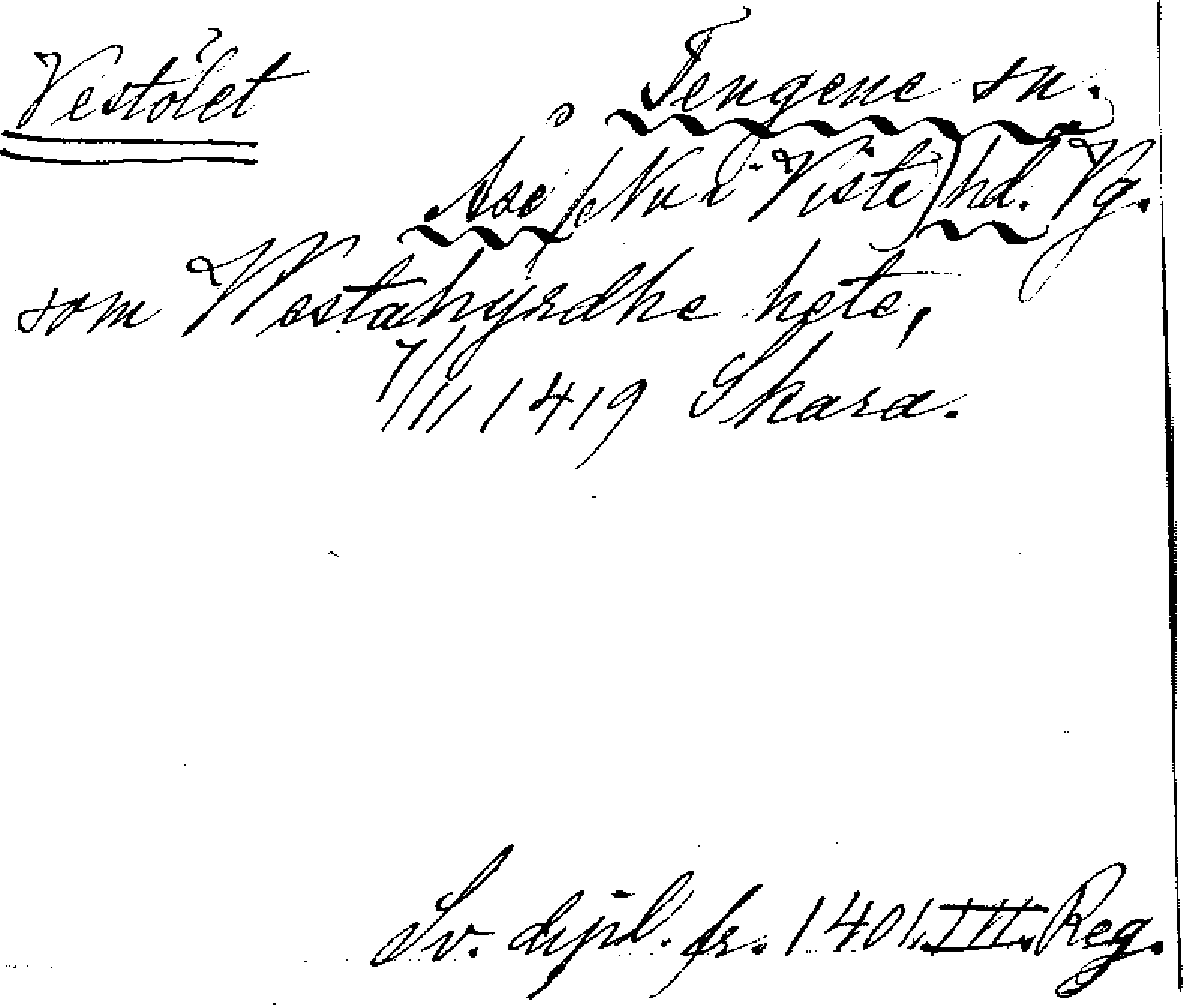 Vestölet Tengene sn.
Åse (Nu i Viste) hd. Vg.
som Westahyrdhe hete,
7/11 1419 Skara.
Sv. dipl. fr. 1401. III. Reg.